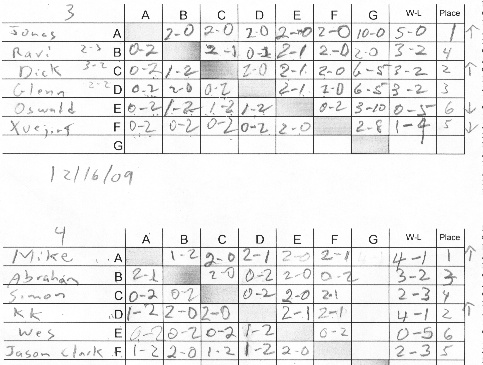 3 A B C D E F G W-L Place
Jonas A 2-0 2-0 2-0 2-0 2-0 10-0 5-0 1 ↑
Ravi 2-3 B 0-2 2-1 0-2 2-1 2-0 2-0 3-2 4
Dick 3-2 C 0-2 1-2 2-0 2-1 2-0 6-5 3-2 2 ↑
Glenn 2-2 D 0-2 2-0 0-2 2-1 2-0 6-5 3-2 3
Oswald E 0-2 1-2 1-2 1-2 0-2 3-10 0-5 6 ↓
F 0-2 0-2 0-2 0-2 2-0 2-8 1-4 5 ↓
G
12/16/09
4 A B C D E F G W-L Place
Mike A 1-2 2-0 2-1 2-0 2-1 4-1 1 ↑
Abrahan B 2-1 2-0 0-2 2-0 0-2 3-2 3
Simon C 0-2 0-2 0-2 2-0 2-1 2-3 4
KK D 1-2 2-0 2-0 2-1 2-1 4-1 2 ↑
Wes E 0-2 0-2 0-2 1-2 0-2 0-5 6
Jason Clark F 1-2 2-0 1-2 1-2 2-0 2-3 5